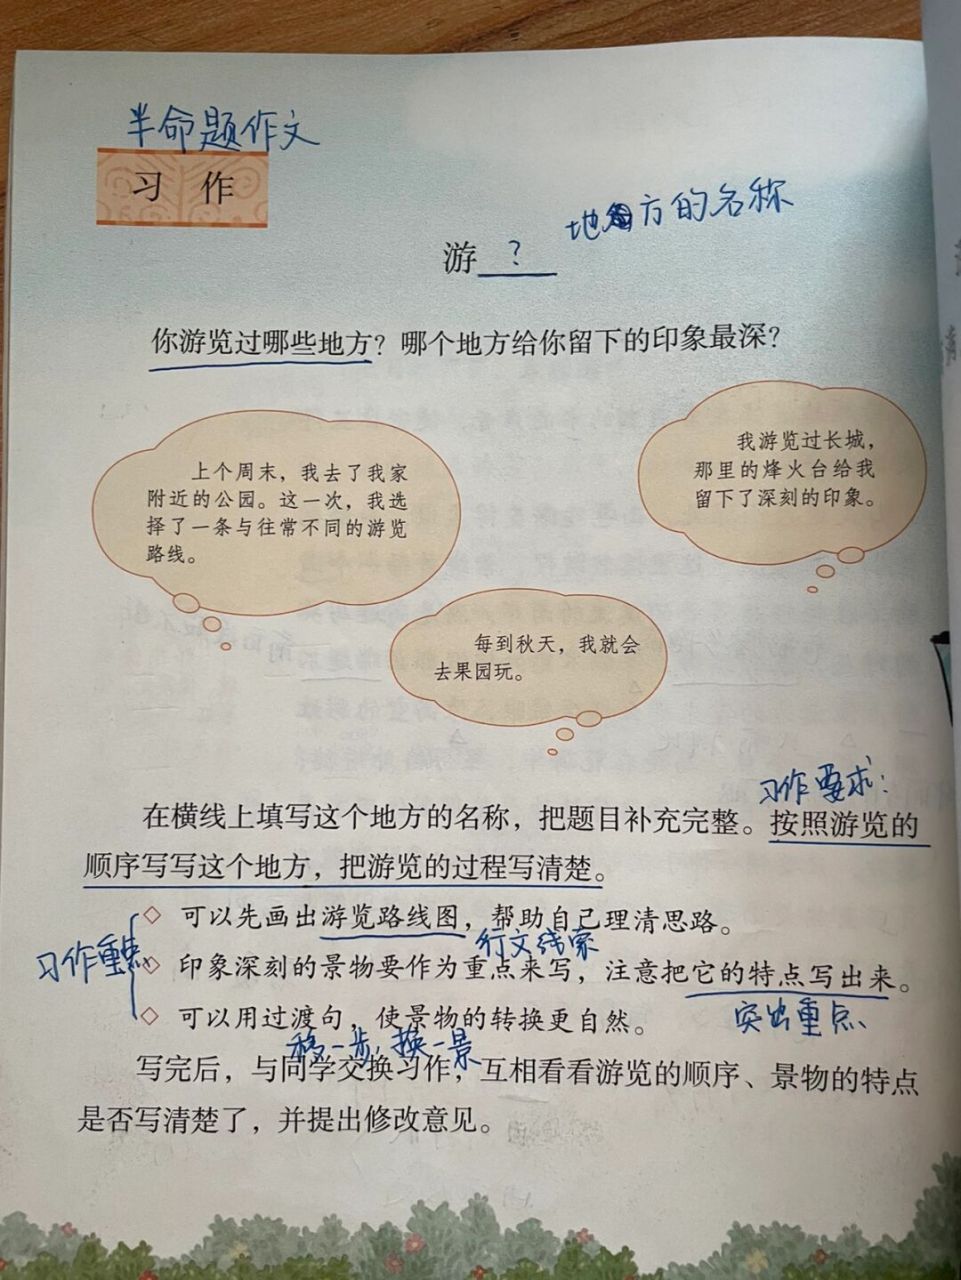 半命题作文
习 作
地方的名称
游 ?
你游览过哪些地方?哪个地方给你留下的印象最深?
上个周末,我去了我家
附近的公园。这一次,我选
择了一条与往常不同的游览
路线。
我游览过长城,
那里的烽火台给我
留下了深刻的印象。
每到秋天,我就会
去果园玩。
习作要求:
在横线上填写这个地方的名称,把题目补充完整。按照游览的
顺序写写这个地方,把游览的过程写清楚。
◇ 可以先画出游览路线图,帮助自己理清思路。
行文线索
习作重点
◇ 印象深刻的景物要作为重点来写,注意把它的特点写出来。
突出重点
◇ 可以用过渡句,使景物的转换更自然。
移一步,换一景
写完后,与同学交换习作,互相看看游览的顺序、景物的特点
是否写清楚了,并提出修改意见。